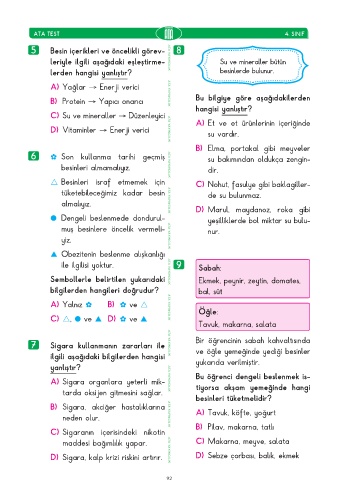 ATA TEST
4. SINIF
5 Besin içerikleri ve öncelikli görev-
leriyle ilgili aşağıdaki eşleştirme-
lerden hangisi yanlıştır?
A) Yağlar → Enerji verici
B) Protein → Yapıcı onarıcı
C) Su ve mineraller → Düzenleyici
D) Vitaminler → Enerji verici
6 ✿ Son kullanma tarihi geçmiş
besinleri almamalıyız.
△ Besinleri israf etmemek için
tüketebileceğimiz kadar besin
almalıyız.
● Dengeli beslenmede dondurul-
muş besinlere öncelik vermeli-
yiz.
▲ Obezitenin beslenme alışkanlığı
ile ilgilisi yoktur.
Sembollerle belirtilen yukarıdaki
bilgilerden hangileri doğrudur?
A) Yalnız ✿ B) ✿ ve △
C) △, ● ve ▲ D) ✿ ve ▲
7 Sigara kullanmanın zararları ile
ilgili aşağıdaki bilgilerden hangisi
yanlıştır?
A) Sigara organlara yeterli mik-
tarda oksijen gitmesini sağlar.
B) Sigara, akciğer hastalıklarına
neden olur.
C) Sigaranın içerisindeki nikotin
maddesi bağımlılık yapar.
D) Sigara, kalp krizi riskini artırır.
8
Su ve mineraller bütün
besinlerde bulunur.
Bu bilgiye göre aşağıdakilerden
hangisi yanlıştır?
A) Et ve et ürünlerinin içeriğinde
su vardır.
B) Elma, portakal gibi meyveler
su bakımından oldukça zengin-
dir.
C) Nohut, fasulye gibi baklagiller-
de su bulunmaz.
D) Marul, maydanoz, roka gibi
yeşilliklerde bol miktar su bulu-
nur.
9
Sabah:
Ekmek, peynir, zeytin, domates,
bal, süt
Öğle:
Tavuk, makarna, salata
Bir öğrencinin sabah kahvaltısında
ve öğle yemeğinde yediği besinler
yukarıda verilmiştir.
Bu öğrenci dengeli beslenmek is-
tiyorsa akşam yemeğinde hangi
besinleri tüketmelidir?
A) Tavuk, köfte, yoğurt
B) Pilav, makarna, tatlı
C) Makarna, meyve, salata
D) Sebze çorbası, balık, ekmek
92